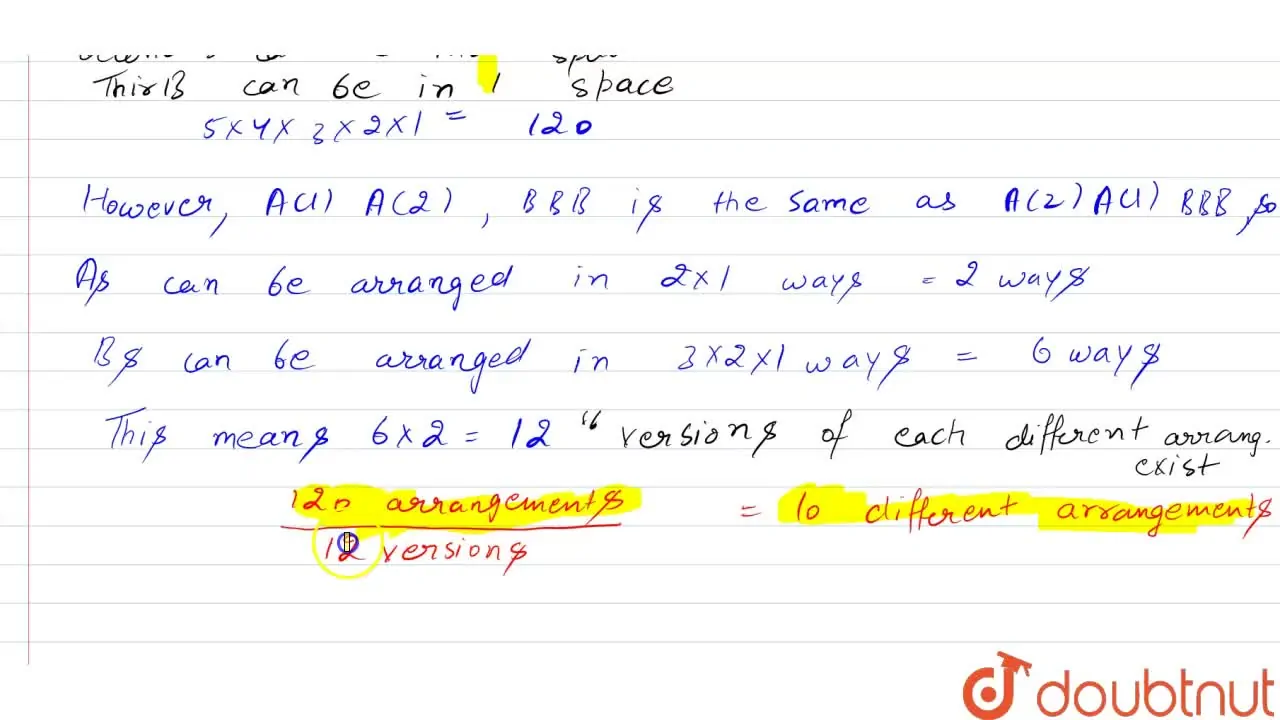 ThirB can be in 1 space
5x4x3x2x1 = 120
However, A(1) A(2), BBB is the same as A(2) A(1) BBB, so
As can be arranged in 2x1 ways = 2 ways
Bs can be arranged in 3x2x1 ways = 6 ways
This means 6x2 = 12 " versions of each different arrang.
exist
120 arrangements = 10 different arrangements
12 versions
doubtnut